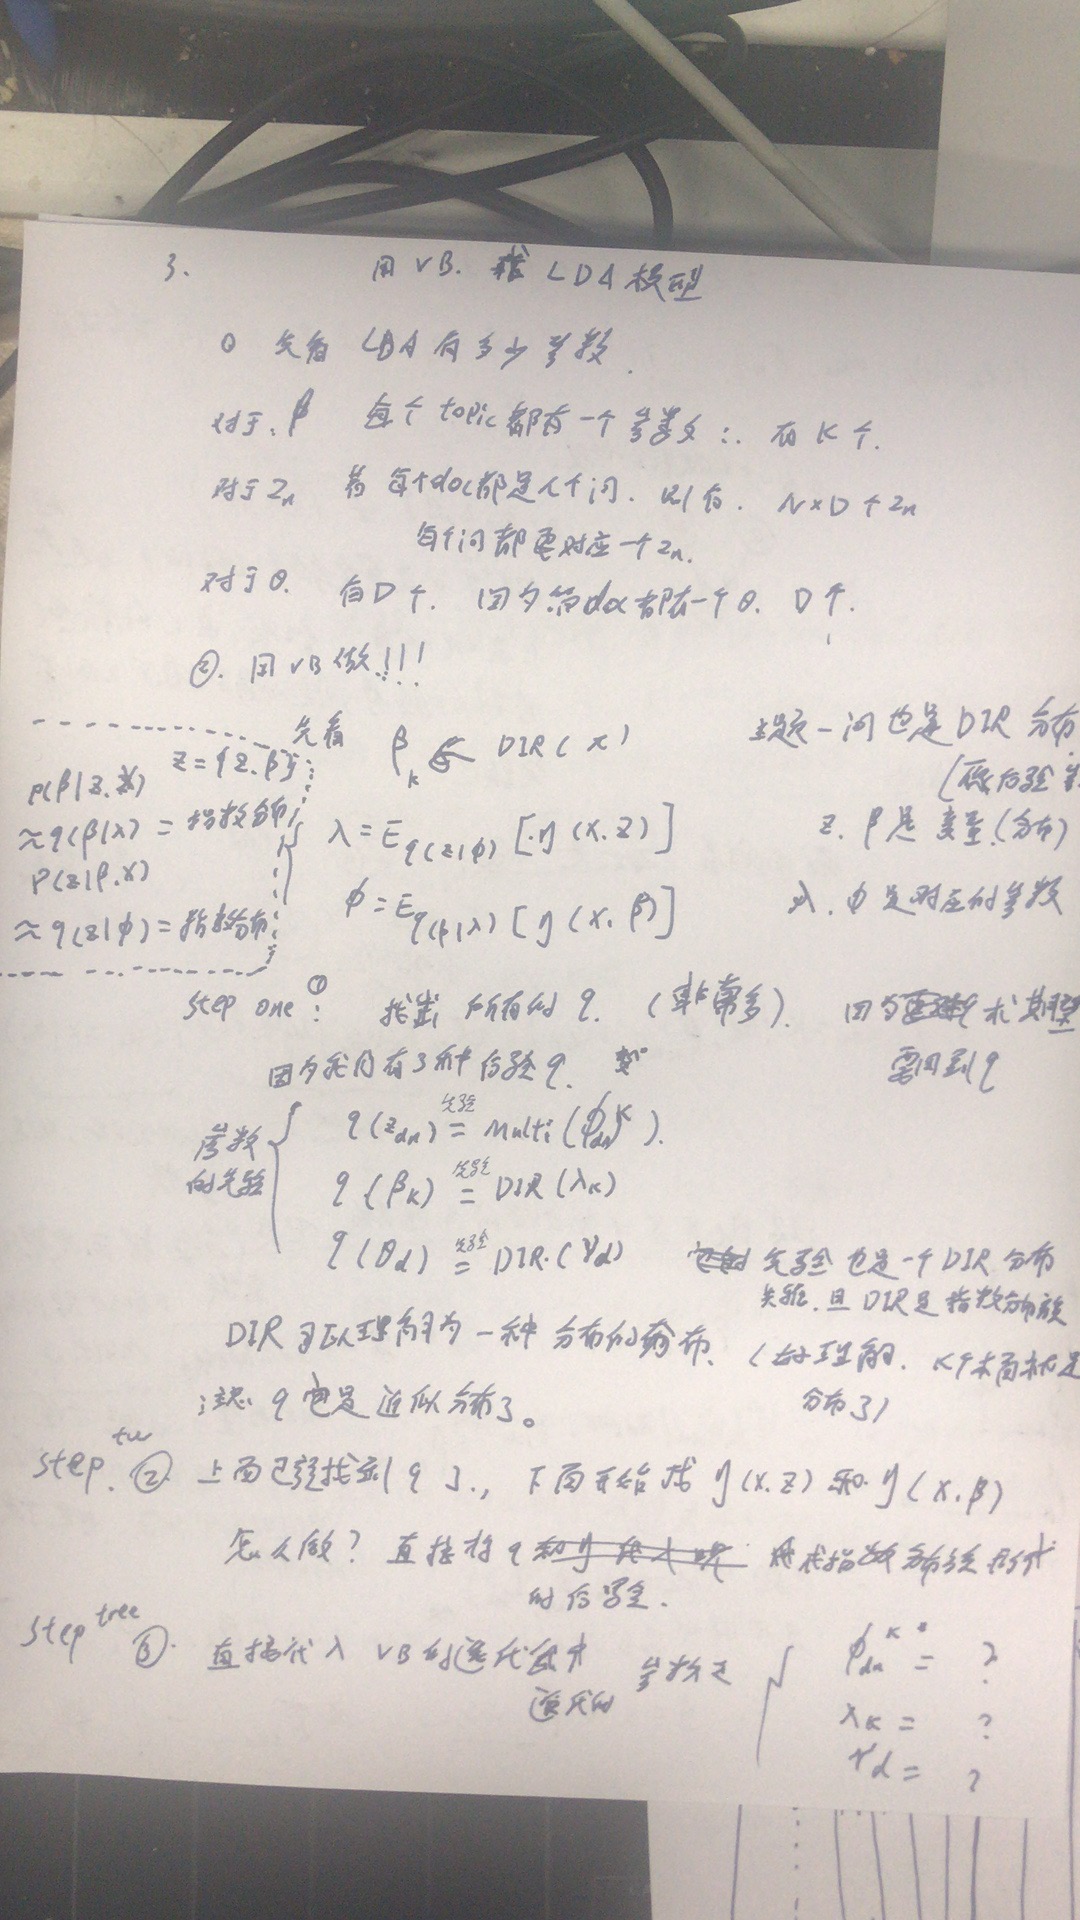 3. 用VB. 找 LDA模型
① 先看 LDA有多少参数.
对于.β 每个topic都有一个参数 ∴ 有K个.
对于Zn 若每个doc都是N个词. 则有. N×D个Zn
每个词都要对应一个Zn.
对于θ. 有D个. 因为.每doc都有一个θ. D个.
②. 用VB做!!!
先看 βK ∈ DIR(λ) 主题一词也是DIR分布
Z={Z.β}
P(β|Z.X)
≈q(β|λ) = 指数分布
P(Z|β.X)
≈q(Z|φ) = 指数分布
λ=Eq(Z|φ) [η(X.Z)] Z.β是变量.(分布)
φ=Eq(β|λ) [η(X.β)] λ.φ是对应的参数
step one ①: 找出所有的q. (非常多). 因为求期望
需用到q
因为我们有3种后验q.
参数
的先验
q(Zdn) 先验= Multi(φdn^K).
q(βK) 先验= DIR(λK)
q(θd) 先验= DIR.(γd) 先验也是一个DIR分布
且DIR是指数分布族
DIR可以理解为一种分布的分布. (好理解. K个本质就是
分布了)
注意 q也是近似分布了。
step. two ② 上面已经找到q了., 下面开始找η(X.Z)和η(X.β)
怎么做? 直接将q 换成指数分布族形式
的后验.
step tree ③. 直接代入VB的迭代 参数是
迭代的
φdn^K = ?
λK = ?
γd = ?